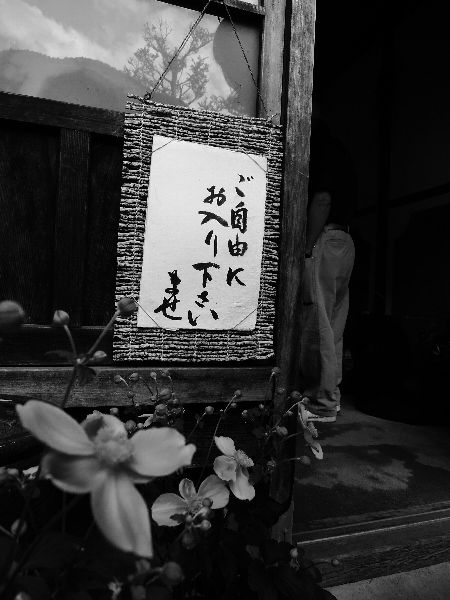 ご自由に
お入り下さい
ませ